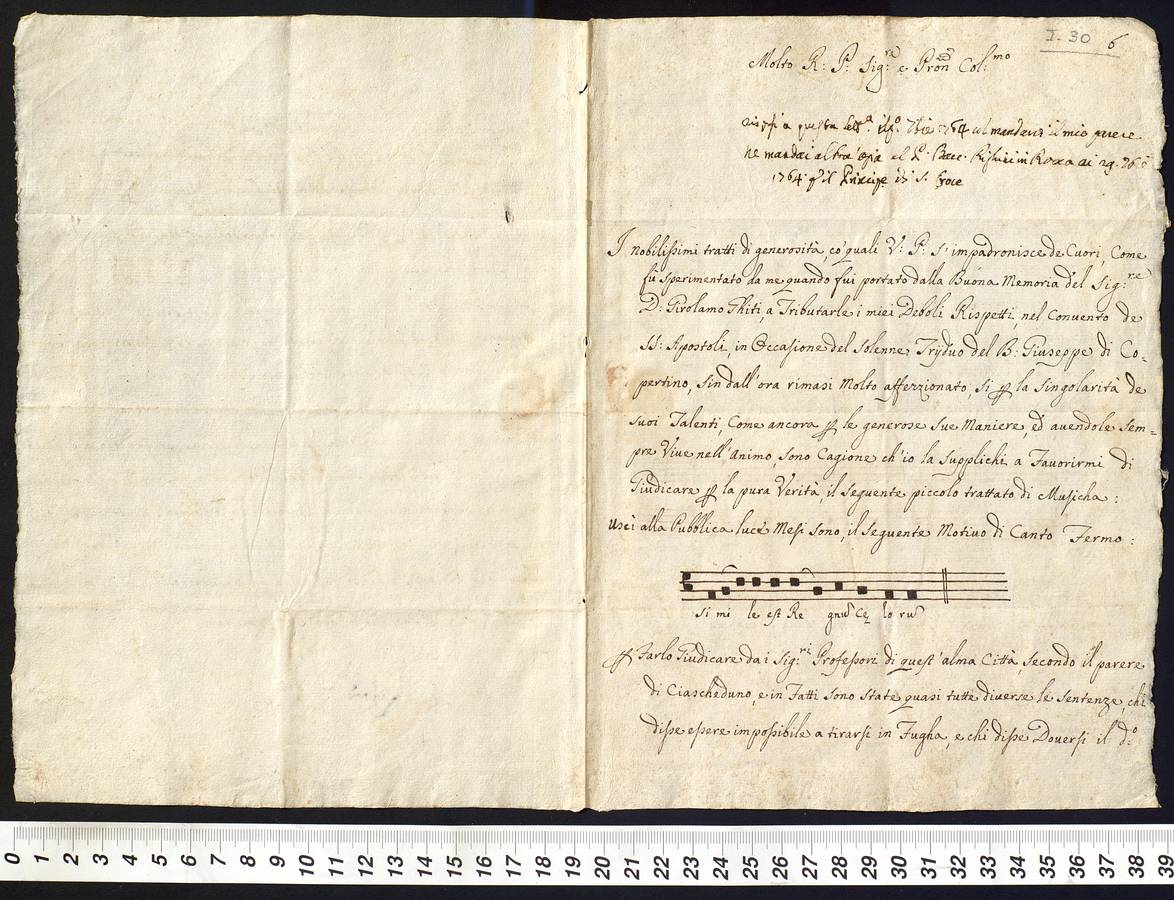 I. 30 6
Molto R: P: Sig:re e Pron Col:mo
1764 il mio parere
ne mandai altra copia al P. in Roma ai 29.
1764 Principe di S. Croce
I nobilissimi tratti di generosità, co' quali V: P: s' impadronisce de Cuori, Come
fù sperimentato da me quando fui portato dalla Buona Memoria del Sig:re
D: Girolamo Chiti, a Tributarle i miei Deboli Rispetti, nel Convento de
SS: Apostoli, in Occasione del Solenne Triduo del B: Giuseppe di Co-
pertino, sin dall' ora rimasi Molto affezzionato, si p la singolarità de
suoi Talenti, Come ancora p le generose sue Maniere, ed auendole sem=
pre Vive nell' Animo, sono Cagione ch' io la supplichi a Fauorirmi di
Giudicare p la pura Verità, il seguente piccolo trattato di Musicha:
Uscì alla Pubblica luce Mesi sono, il seguente Motiuo di Canto Fermo:
si mi le est Re gnu Ce lo ru
p Farlo Giudicare da i Sig:ri Professori di quest' alma Città, secondo il parere
di Ciascheduno, e in Fatti sono state quasi tutte diuerse le sentenze, chi
disse essere impossibile a tirarsi in Fugha, e chi disse Douersi il d:o